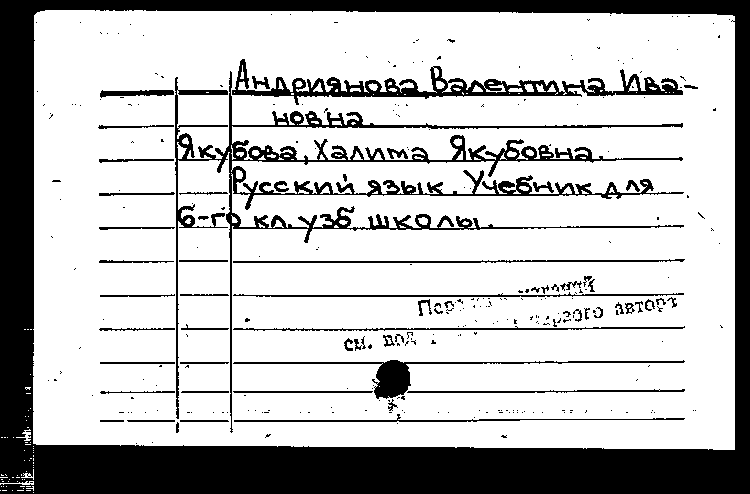 Андриянова, Валентина Ива-
новна.
Якубова, Халима Якубовна.
Русский язык. Учебник для
6-го кл. узб. школы.
см. под первого автора